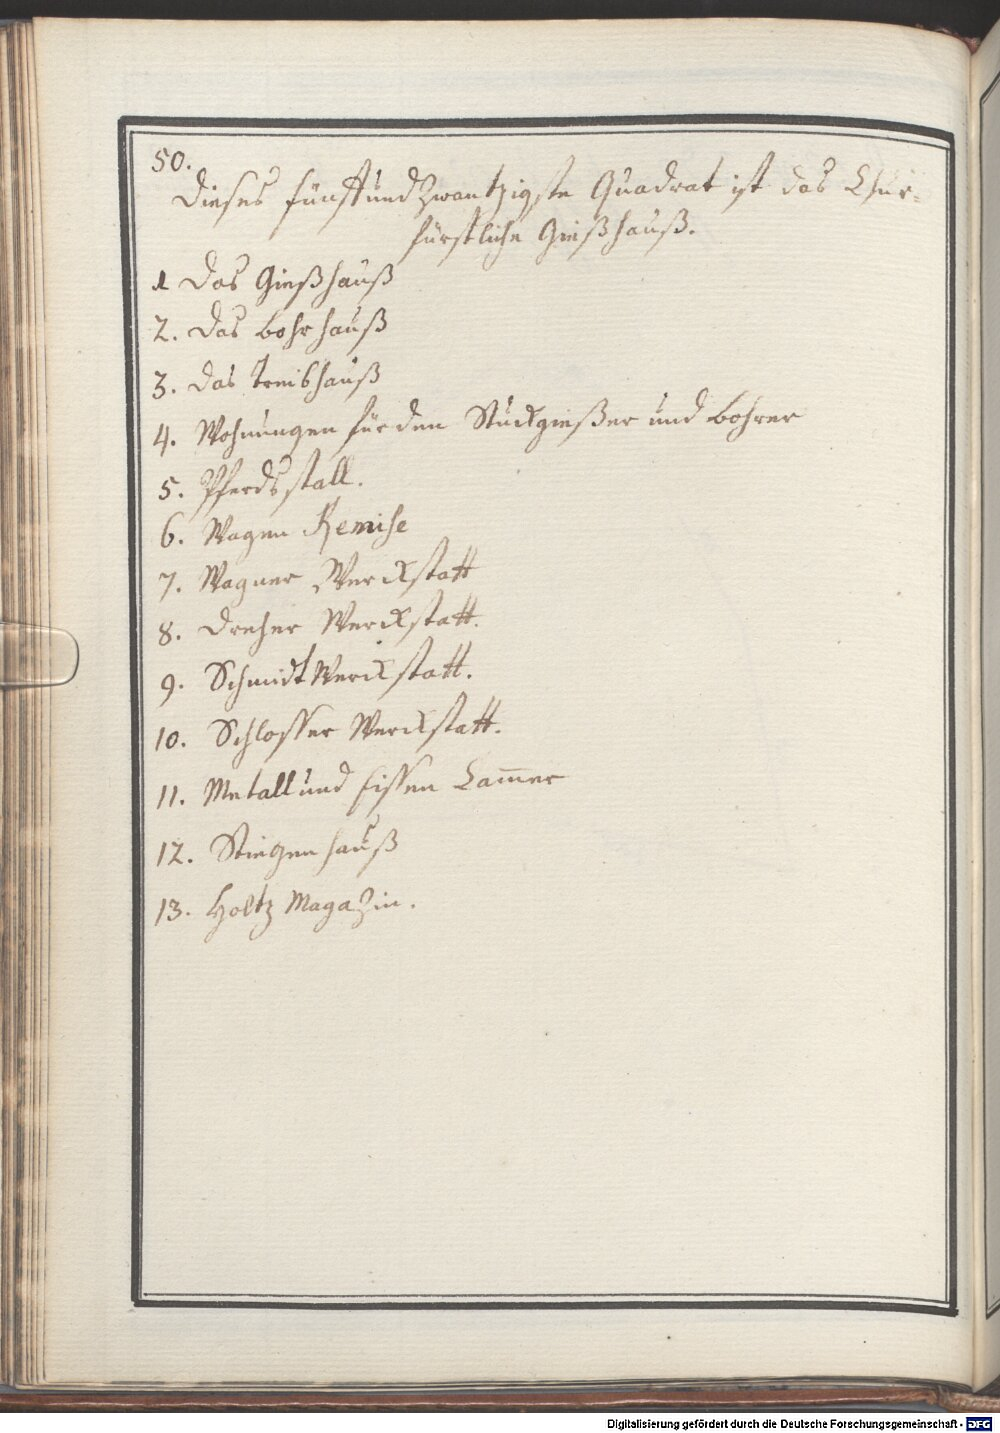 50.
Dieses fünffundzwantzigste Quadrat ist das Chur-
fürstliche Gießhauß.
1 Das Gießhauß
2. Das bohrhauß
3. Das Treibhauß
4. Wohnungen für den Stuckgießer und bohrer
5. Pferdsstall.
6. Wagen Remise
7. Wagner Werckstatt
8. Dreher Werckstatt.
9. Schmidt Werckstatt.
10. Schlosser Werckstatt.
11. Metall und Eissen Cam̅er
12. Stiegenhauß
13. Holtz Magazin.
Digitalisierung gefördert durch die Deutsche Forschungsgemeinschaft - DFG